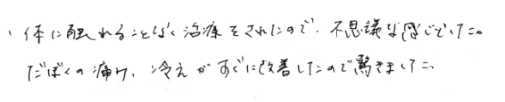 ・体に触れることなく治療をされたので、不思議な感じでした。
だぼくの痛み、冷えがすぐに改善したので驚きました。